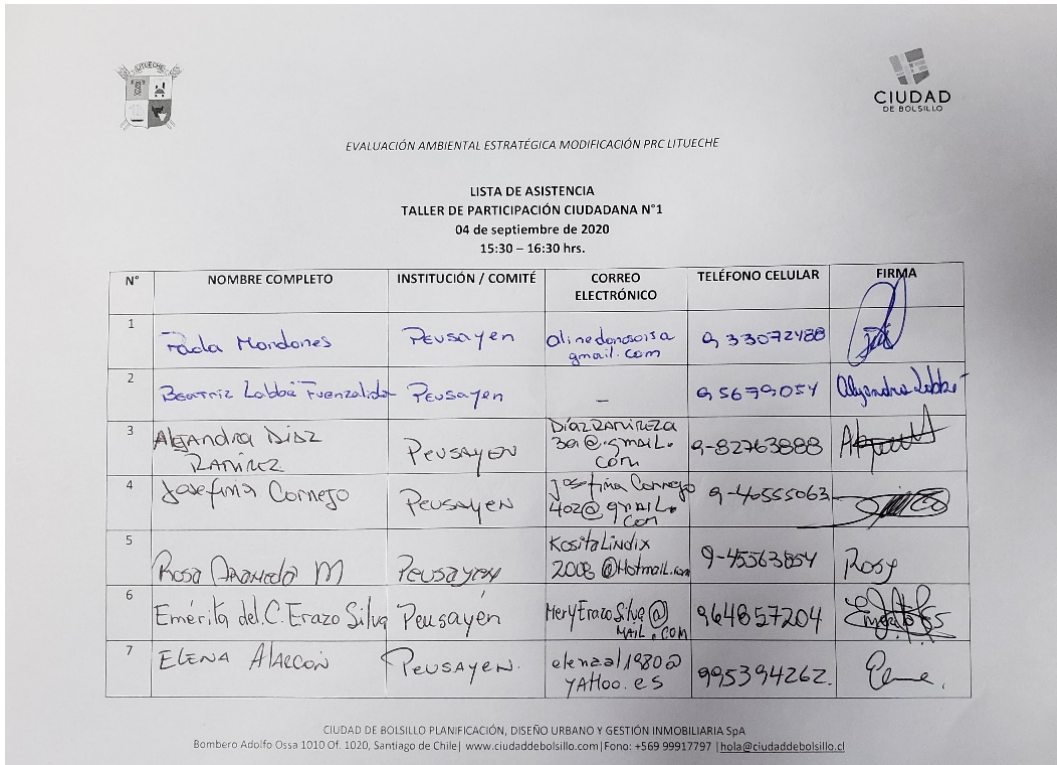 LITUECHE
CIUDAD
DE BOLSILLO
EVALUACIÓN AMBIENTAL ESTRATÉGICA MODIFICACIÓN PRC LITUECHE
LISTA DE ASISTENCIA
TALLER DE PARTICIPACIÓN CIUDADANA N°1
04 de septiembre de 2020
15:30 – 16:30 hrs.
N° NOMBRE COMPLETO INSTITUCIÓN / COMITÉ CORREO ELECTRÓNICO TELÉFONO CELULAR FIRMA
1 Paola Mondones Peusayen alinedonosoisa gmail.com 9 33072488
2 Beatriz Labbé Fuenzalida Peusayen – 9 5679054 Alejandra Labbé
3 Alejandra Diaz Ramirez Peusayen DiazRamireza 30@.gmail.com 9-82763888
4 Josefina Cornejo Peusayen Josefina Cornejo 402@gmail.com 9-40555063
5 Rosa M Peusayen KositaLindix 2008 @Hotmail.com 9-45563854 Rosy
6 Emérita del.C. Erazo Silva Peusayén MeryErazoSilva@ MAIL.COM 964857204
7 ELENA ALARCON Peusayen. elenaal1980@ YAHOO.es 995394262.
CIUDAD DE BOLSILLO PLANIFICACIÓN, DISEÑO URBANO Y GESTIÓN INMOBILIARIA SpA
Bombero Adolfo Ossa 1010 Of. 1020, Santiago de Chile| www.ciudaddebolsillo.com|Fono: +569 99917797 |hola@ciudaddebolsillo.cl